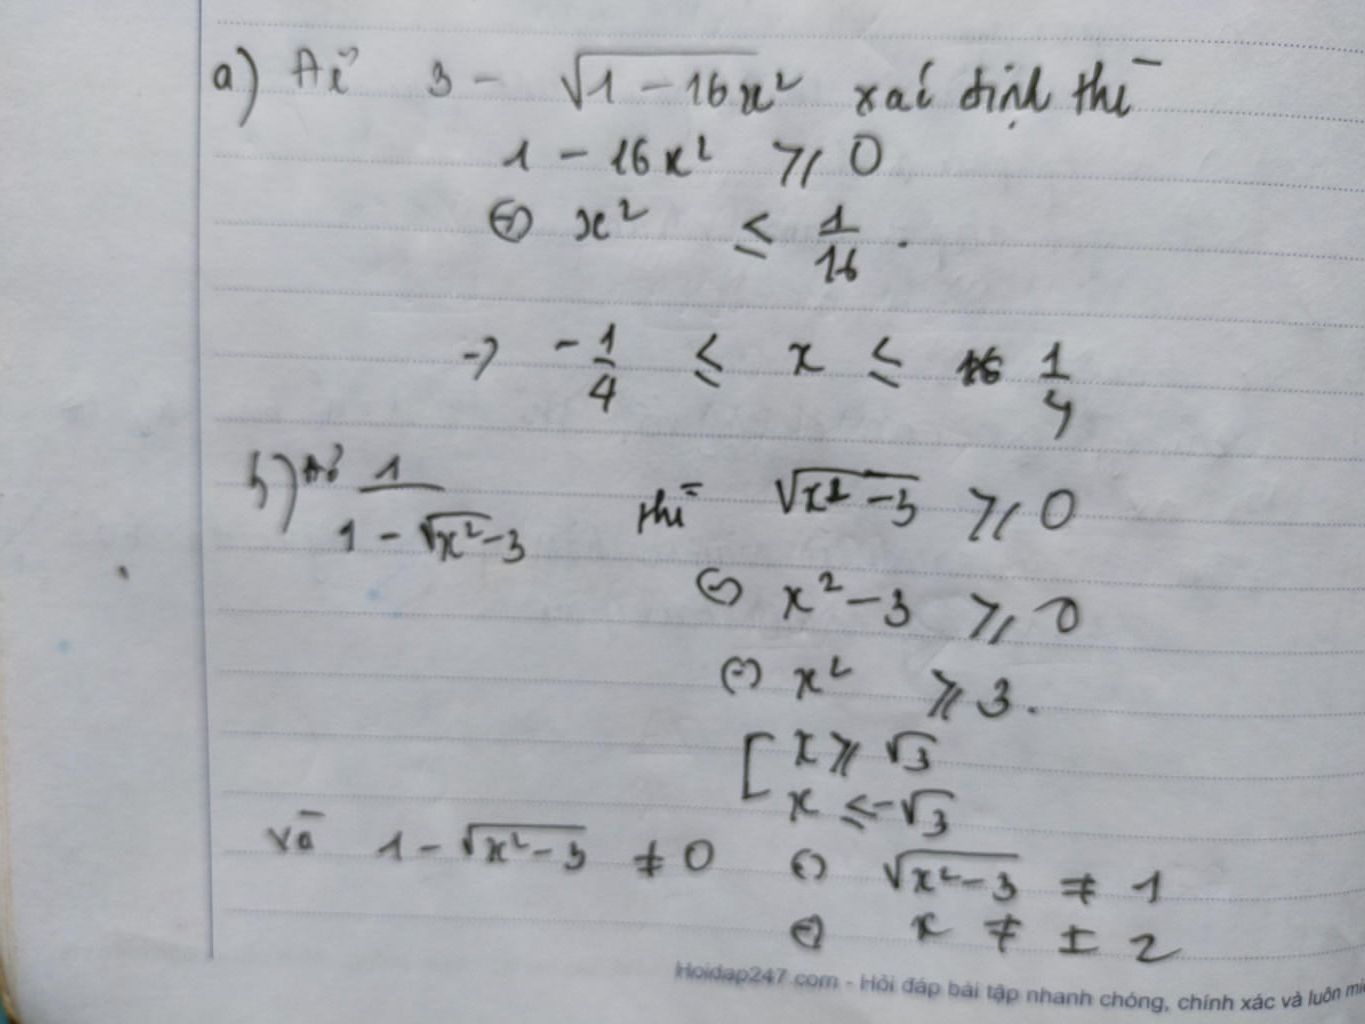 a) Để 3 - √1 - 16x² xác định thì
1 - 16x² ≥ 0
⇔ x² ≤ 1/16.
→ -1/4 ≤ x ≤ 1/4
b) Để 1/(1 - √x² - 3) thì √x² - 3 ≥ 0
⇔ x² - 3 ≥ 0
⇔ x² ≥ 3.
[ x ≥ √3
x ≤ -√3
và 1 - √x² - 3 ≠ 0 ⇔ √x² - 3 ≠ 1
⇔ x ≠ ± 2
Hoidap247.com - Hỏi đáp bài tập nhanh chóng, chính xác và luôn